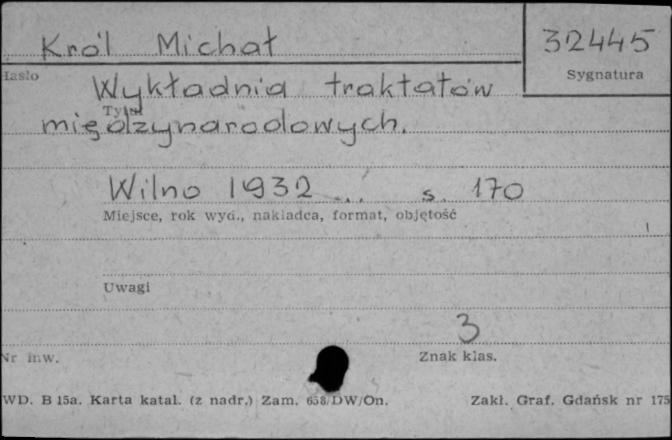 Król Michał 32445
Hasło Sygnatura
Wykładnia traktatów
Tytuł
międzynarodowych.
Wilno 1932 ... s. 170
Miejsce, rok wyd., nakładca, format, objętość
Uwagi
3
Nr inw. Znak klas.
WD. B 15a. Karta katal. (z nadr.) Zam. 658/DW/On. Zakł. Graf. Gdańsk nr 175